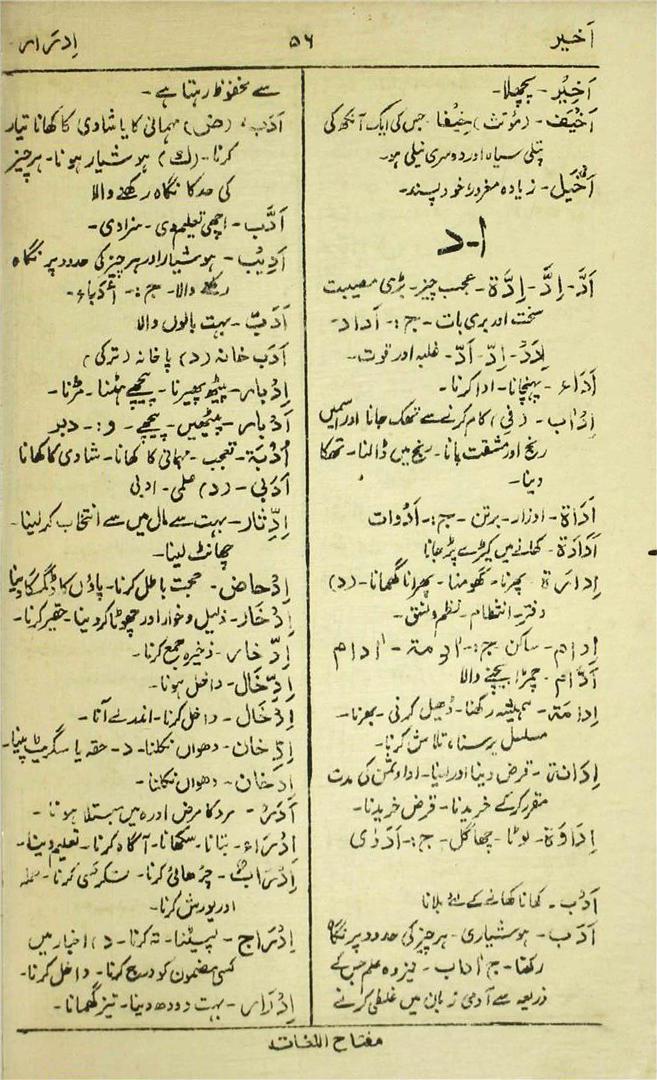 اَخیر
۵۶
اِدرار
اَخِیْر - پچھلا -
اَخْیَف - (مؤنث) خَیْفا - جس کی ایک آنکھ کی
پتلی سیاہ اور دوسری نیلی ہو۔
اَخْیَل - زیادہ مغرور خود پسند -
ا-د
اَدَّ - اِدَّ - اِدَّة - عجب چیز - بڑی مصیبت
سخت اور بری بات - ج :- اَداد -
اَدّ - غلبہ اور قوت -
اَدَاء - پہنچانا - ادا کرنا -
کام کرنے سے تھک جانا اور اسمیں
رنج اور مشقت پانا - رنج میں ڈالنا - تھکا
دینا -
اَدَاة - اوزار - برتن - ج :- اَدَوات
کھانے میں کیڑے پڑ جانا
اِدارَة پھرنا - گھومنا - پھرانا گھمانا - (د)
دفتر - انتظام - نظم و نسق -
اِدام - ساکن ج :- ادمة - ادام
اَدّام - چمڑا بیچنے والا
اِدَامَة - ہمیشہ رکھنا - ڈھیل کرنی - بھرنا -
مسلسل برسنا، تلاش کرنا -
اِدَانَة - قرض دینا اور لینا - ادا و ثمن کی مدت
مقرر کرکے خریدنا - قرض خریدنا -
اِدَاوَة - لوٹا - چھاگل - ج :- اَدَاوٰی
اَدْب - کھانا کھانے کے لئے بلانا
اَدَب - ہوشیاری - ہر چیز کی حدود پر نگاہ
رکھنا - ج اٰداب - نیز وہ علم جس کے
ذریعہ سے آدمی زبان میں غلطی کرنے
سے محفوظ رہتا ہے -
اَدَب، (ض) مہمانی کا یا شادی کا کھانا تیار
کرنا - (ك) ہوشیار ہونا - ہر چیز
کی حد کا نگاہ رکھنے والا
اَدَّب - اچھی تعلیم دی - سزا دی -
اَدِیْب - ہوشیار اور ہر چیز کی حدود پر نگاہ
رکھنے والا - ج :- اُدَباء -
اَدَبّ - بہت بالوں والا
اَدَب خانہ (د) پاخانہ (ترکی)
اِدْبار - پیٹھ پھیرنا - پیچھے ہٹنا - مڑنا -
اَدْبار - پیٹھیں - پیچھے - و :- دبر
اُدْبَة - تعجب - مہمانی کا کھانا - شادی کا کھانا
اَدَبی - (د) علمی - ادبی
اِدِّثار - بہت سے مال میں سے انتخاب کر لینا -
چھانٹ لینا -
اِدْحاض - حجت باطل کرنا - پاؤں کا ڈگمگا دینا
اِدْخَار - ذلیل و خوار اور چھوٹا کر دینا - حقیر کرنا -
اِدِّخار - ذخیرہ جمع کرنا -
اِدِّخَال - داخل ہونا -
اِدْخَال - داخل کرنا - اندر لے آنا -
اِدِّخان - دھواں نکلنا - د - حقہ یا سگریٹ پینا -
اِدخَان - دھواں نکلنا -
اَدَر - مرد کا مرض ادرہ میں مبتلا ہونا -
اِدْرَاء - بتانا - سکھانا - آگاہ کرنا - تعلیم دینا -
اِدْرَاب - چڑھائی کرنا - لشکر کشی کرنا - حملہ
اور یورش کرنا -
اِدْرَاج - لپیٹنا - تہ کرنا - د) اخبار میں
کسی مضمون کو درج کرنا - داخل کرنا -
اِدْرَار - بہت دودھ دینا - تیز گھمانا -
مفتاح اللغات